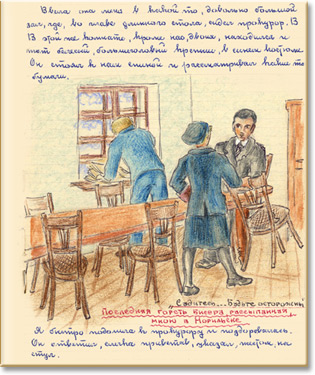 Ввела она меня в какой то, довольно большой
зал, где, во главе длинного стола, сидел прокурор. В
этой же комнате, кроме нас, двоих, находился и
тот белесый, большеголовый крепыш, в синем костюме.
Он стоял к нам спиной и рассматривал какие то
бумаги.
Садитесь... Будьте осторожны
Последняя горсть бисера, рассыпанная
мною в Норильске.
Я быстро подошла к прокурору и поздоровалась.
Он ответил, слегка привстав, указал жестом на
стул.